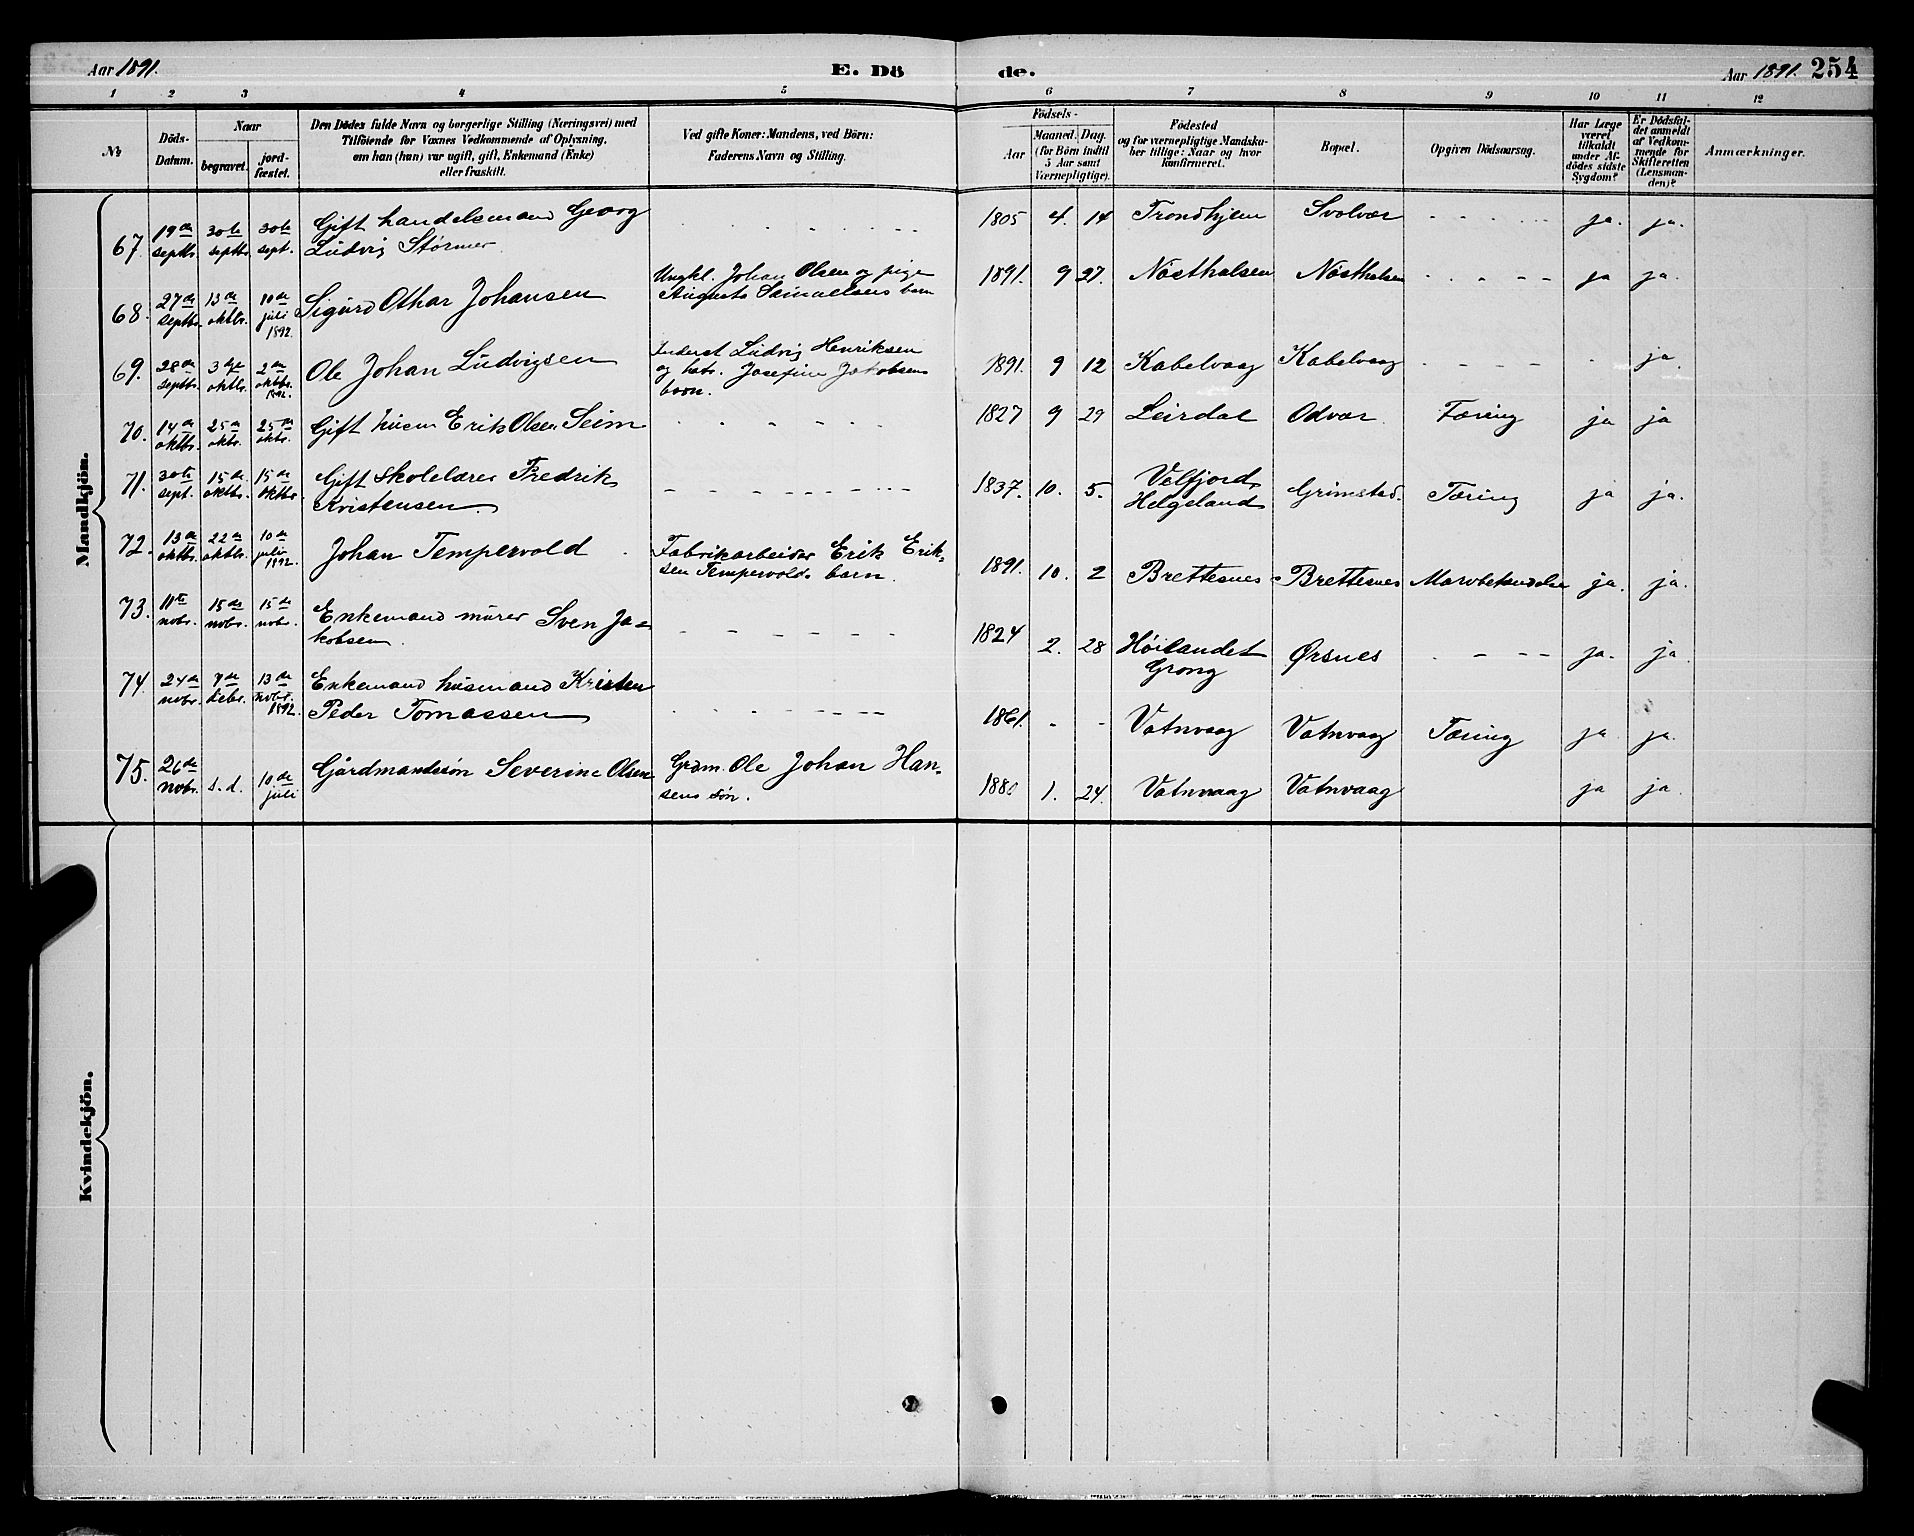 Aar 1891. E. Dö de. Aar 1891. 254
1 2 3 4 5 6 7 8 9 10 11 12
No.
Döds-
Datum.
Naar
begravet.
jord-
fæstet.
Den Dödes fulde Navn og borgerlige Stilling (Næringsvei) med
Tilföiende for Voxnes Vedkommende af Oplysning,
om han (hun) var ugift, gift, Enkemand (Enke)
eller fraskilt.
Ved gifte Koner: Mandens, ved Börn:
Faderens Navn og Stilling.
Födsels-
Aar
Maaned. Dag.
(for Börn indtil
5 Aar samt
Værnepligtige).
Födested
og for værnepligtige Mandska-
ber tillige: Naar og hvor
konfirmeret.
Bopæl.
Opgiven Dödsaarsag.
Har Læge
været
tilkaldt
under Af-
dödes sidste
Sygdom?
Er Dödsfal-
det anmeldt
af Vedkom-
mende for
Skifteretten
(Lensman-
den)?
Anmærkninger.
Mandkjön.
67. 19de septbr. 30te septbr. 30te sept. Gift handelsmand Georg
Ludvig Størmer
1805 4. 14 Trondhjem Svolvær ja. ja.
68. 27de septbr. 13de oktbr. 10de juli 1892. Sigurd Othar Johansen
Ungkl. Johan Olsen og pige
Augusta Samuelsens barn
1891. 9 27. Nøsthalsen Nøsthalsen ja ja.
69. 28de septbr. 3dje oktbr. 2den oktbr. 1892. Ole Johan Ludvigsen
Inderst Ludvig Henriksen
og hstr. Josefine Jakobsens
barn.
1891. 9 12 Kabelvaag Kabelvaag ja.
70. 14de oktbr. 25de oktbr. 25de oktbr. Gift husm Erik Olsen Seim
1827 9 29 Leirdal Odvær Tæring ja ja
71. 30te sept. 15de oktbr. 15de oktbr. Gift skolelærer Fredrik
Kristensen.
1837. 10. 5. Velfjord,
Helgeland Grimstad. Tæring ja ja.
72. 13de oktbr. 22de oktbr. 10de juli 1892. Johan Tempervold
Fabrikarbeider Erik Erik-
sen Tempervolds barn.
1891. 10. 2 Brettesnes Brettesnes ja. ja.
73. 11te nobr. 15de nobr. 15de nobr. Enkemand murer Sven Ja-
kobsen.
1824 2. 28 Høilandet
Grong Ørsnes ja. ja.
74. 24de nobr. 7de debr. 13de nobr. 1892. Enkemand husmand Kristen
Peder Tomassen
1861. - - Vatnvaag Vatnvaag Tæring ja ja.
75. 26de nobr. s.d. 10de juli Gårdmandssøn Severin Olsen
Grdm. Ole Johan Han-
sens søn.
1880 1. 24. Vatnvaag Vatnvaag ja ja.
Kvindekjön.